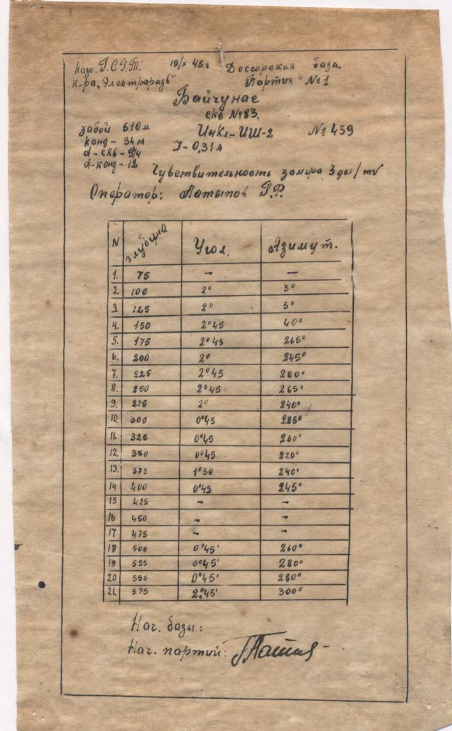 Казо. Г.С.Г.Т. 19/X 45 г Доссорская база.
К-ра "Электроразв" Партия №1
Байчунас
скв №83.
забой 610 м Инкл-ИШ-2 №439
конд - 34 м J - 0,31А
d - скв - 9 3/4
d - конд - 12 Чувствительность замера 3 дел/mV
Оператор: Латыпов Г.Р.
N глубина Угол. Азимут.
1. 75 - -
2. 100 2° 5°
3. 125 2° 5°
4. 150 2°45 40°
5. 175 2°45 265°
6. 200 2° 245°
7. 225 2°45 280°
8. 250 2°45 265°
9. 275 2° 240°
10. 300 0°45 225°
11. 325 0°45 260°
12. 350 0°45 220°
13. 375 1°30 240°
14 400 0°45 245°
15 425 - -
16 450 - -
17 475 - -
18 500 0°45' 260°
19 525 0°45' 280°
20 550 0°45' 280°
21. 575 2°45' 300°
Нач. базы:
Нач. партии: